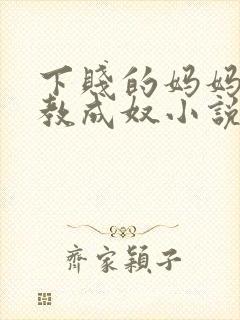 下賤的妈妈
教成奴小説
齊家穎子